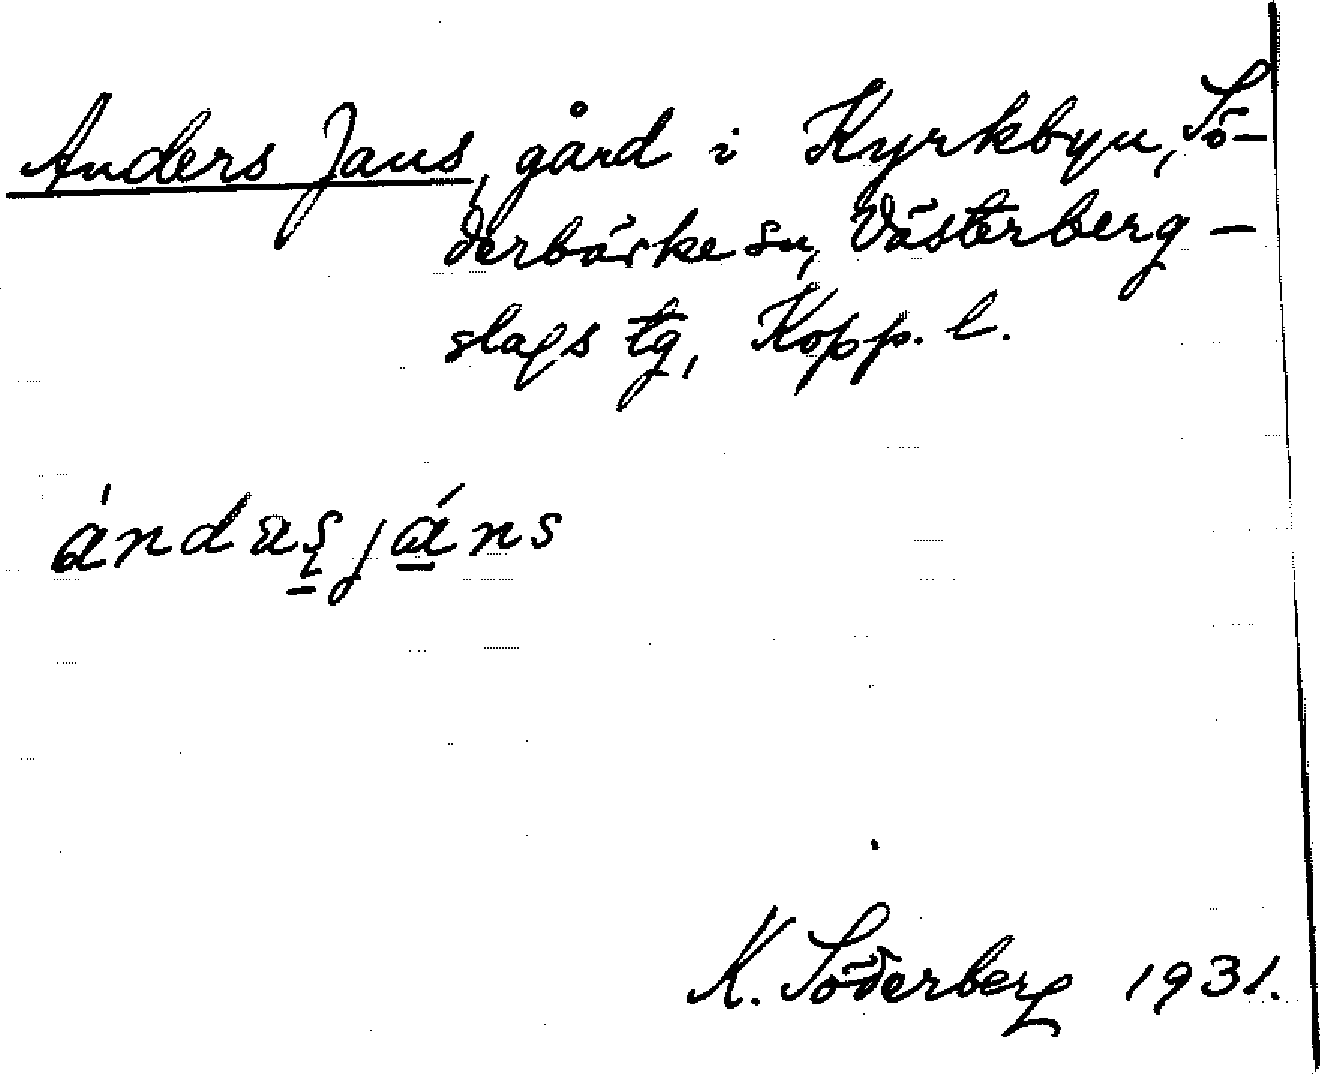 Anders Jans, gård i Kyrkbyn, Sö-
derbärke sn, Västerberg-
slags tg, Kopp. l.
ándaʂjáns
K. Söderberg 1931.